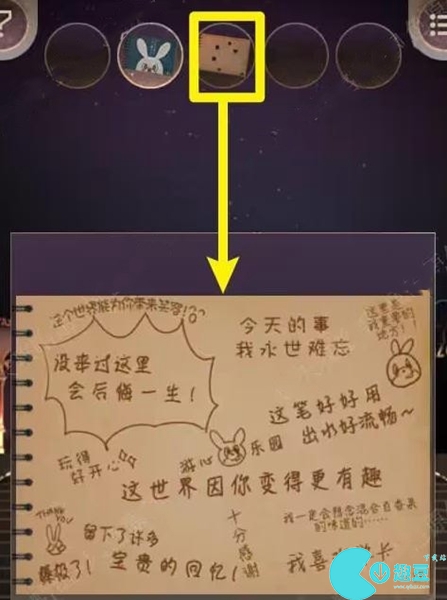 这个世界能为你带来笑容!
没来过这里
会后悔一生!
今天的事
我永世难忘
这里是
我重要的
地方!
这笔好好用
出水好流畅~
玩得
好开心
游心
乐园
这世界因你变得更有趣
THANK
YOU
留下了许多
宝贵的回忆!
十分感谢
我一定会想念混合百香果
的味道的……
我喜
长
极了!
趣豆
下载站